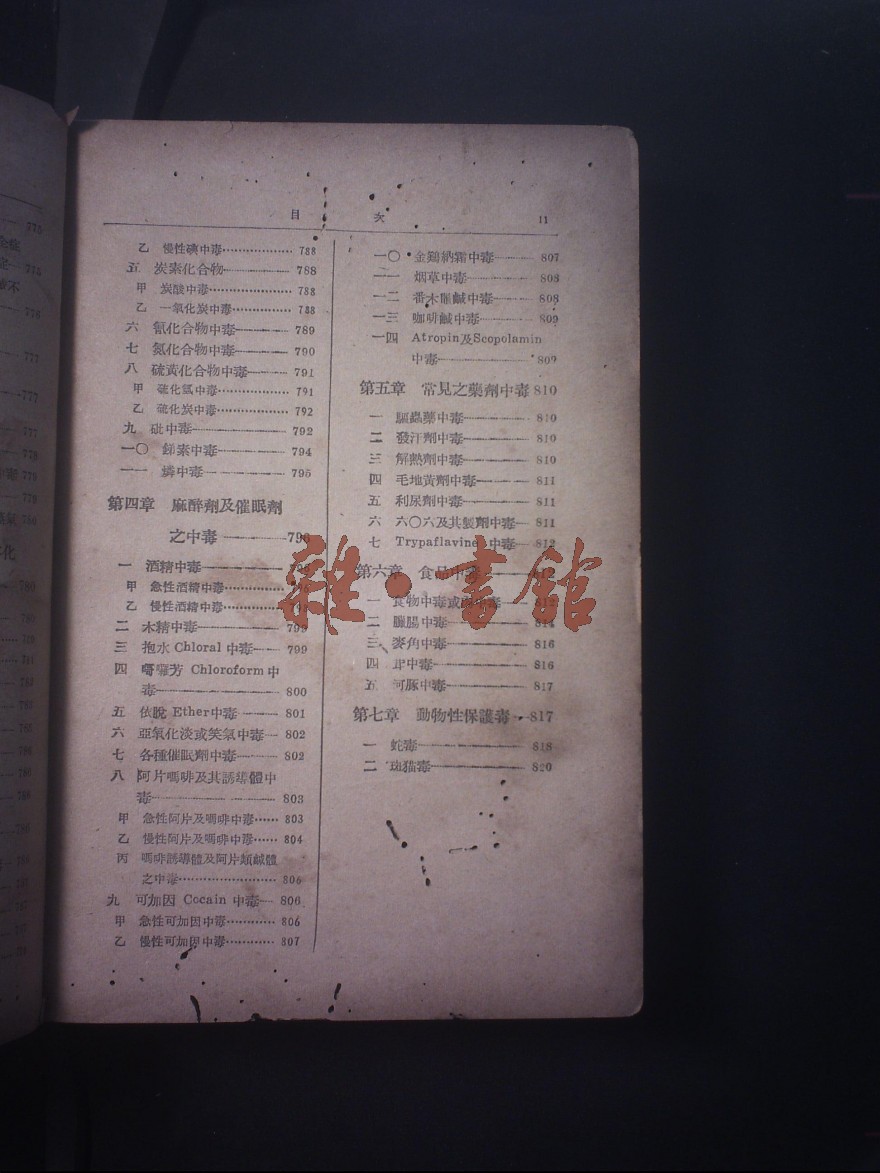 目 次 11
乙 慢性碘中毒 788
五 炭素化合物 788
甲 炭酸中毒 788
乙 一氧化炭中毒 788
六 氰化合物中毒 789
七 氮化合物中毒 790
八 硫黃化合物中毒 791
甲 硫化氫中毒 791
乙 硫化炭中毒 792
九 砒中毒 792
一〇 銻素中毒 794
一一 燐中毒 795
第四章 麻醉劑及催眠劑
之中毒
一 酒精中毒
甲 急性酒精中毒
乙 慢性酒精中毒
二 木精中毒 799
三 抱水 Chloral 中毒 799
四 哥羅芳 Chloroform 中
毒 800
五 依脫 Ether 中毒 801
六 亞氧化淡或笑氣中毒 802
七 各種催眠劑中毒 802
八 阿片嗎啡及其誘導體中
毒 803
甲 急性阿片及嗎啡中毒 803
乙 慢性阿片及嗎啡中毒 804
丙 嗎啡誘導體及阿片類鹹體
之中毒 806
九 可加因 Cocain 中毒 806
甲 急性可加因中毒 806
乙 慢性可加因中毒 807
一〇 金鷄納霜中毒 807
一一 烟草中毒 808
一二 番木鼈鹹中毒 808
一三 咖啡鹹中毒 809
一四 Atropin及Scopolamin
中毒 809
第五章 常見之藥劑中毒 810
一 驅蟲藥中毒 810
二 發汗劑中毒 810
三 解熱劑中毒 810
四 毛地黃劑中毒 811
五 利尿劑中毒 811
六 六〇六及其製劑中毒 811
七 Trypaflavine 中毒 812
第六章 食品中毒 812
一 食物中毒或肉中毒 812
二 臘腸中毒 814
三 麥角中毒 816
四 中毒 816
五 河豚中毒 817
第七章 動物性保護毒 817
一 蛇毒 818
二 斑猫毒 820
雜·書館